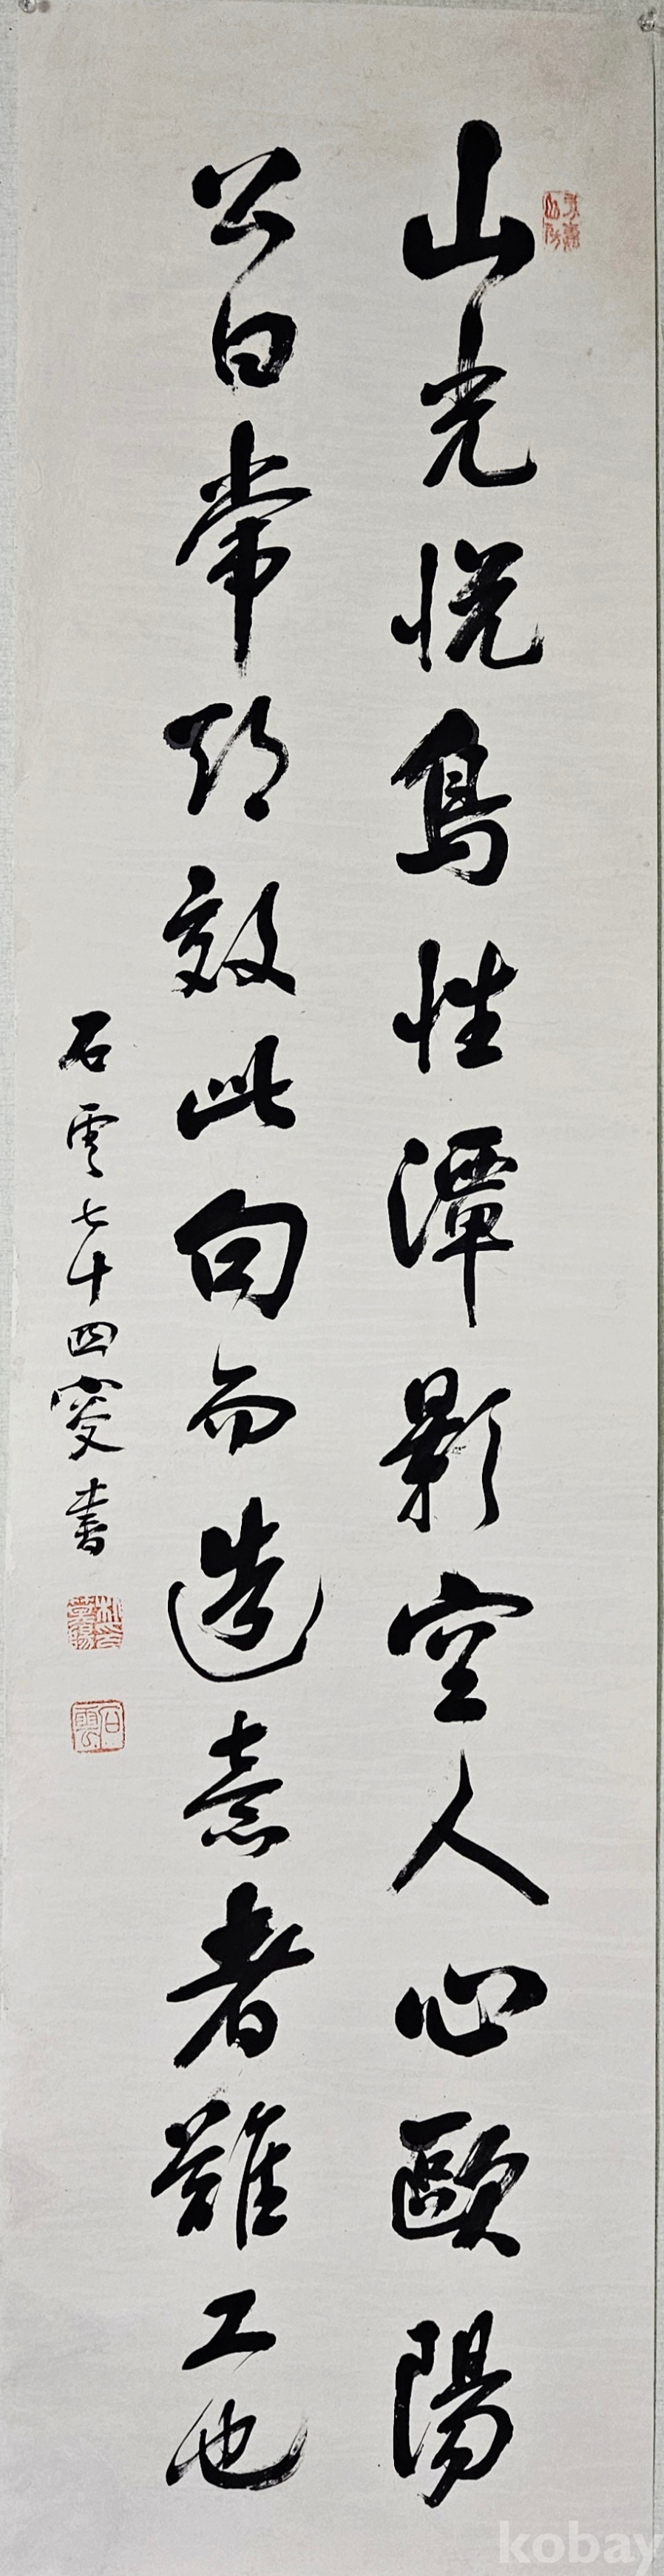 山光悅鳥性潭影空人心歐陽
公曰常欲效此句而造意者難工也
石雲七十四叟書
石雲
kobay